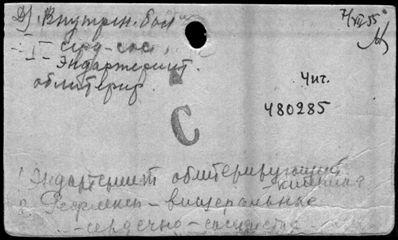 Внутрен. бол
7/VII 55
I - серд-сос.
- Эндартериит.
облитерир.
Чит.
480285
С
1 Эндартериит облитерирующий
- клиника
2 Рефлексы - висцеральные
- сердечно - сосудистые